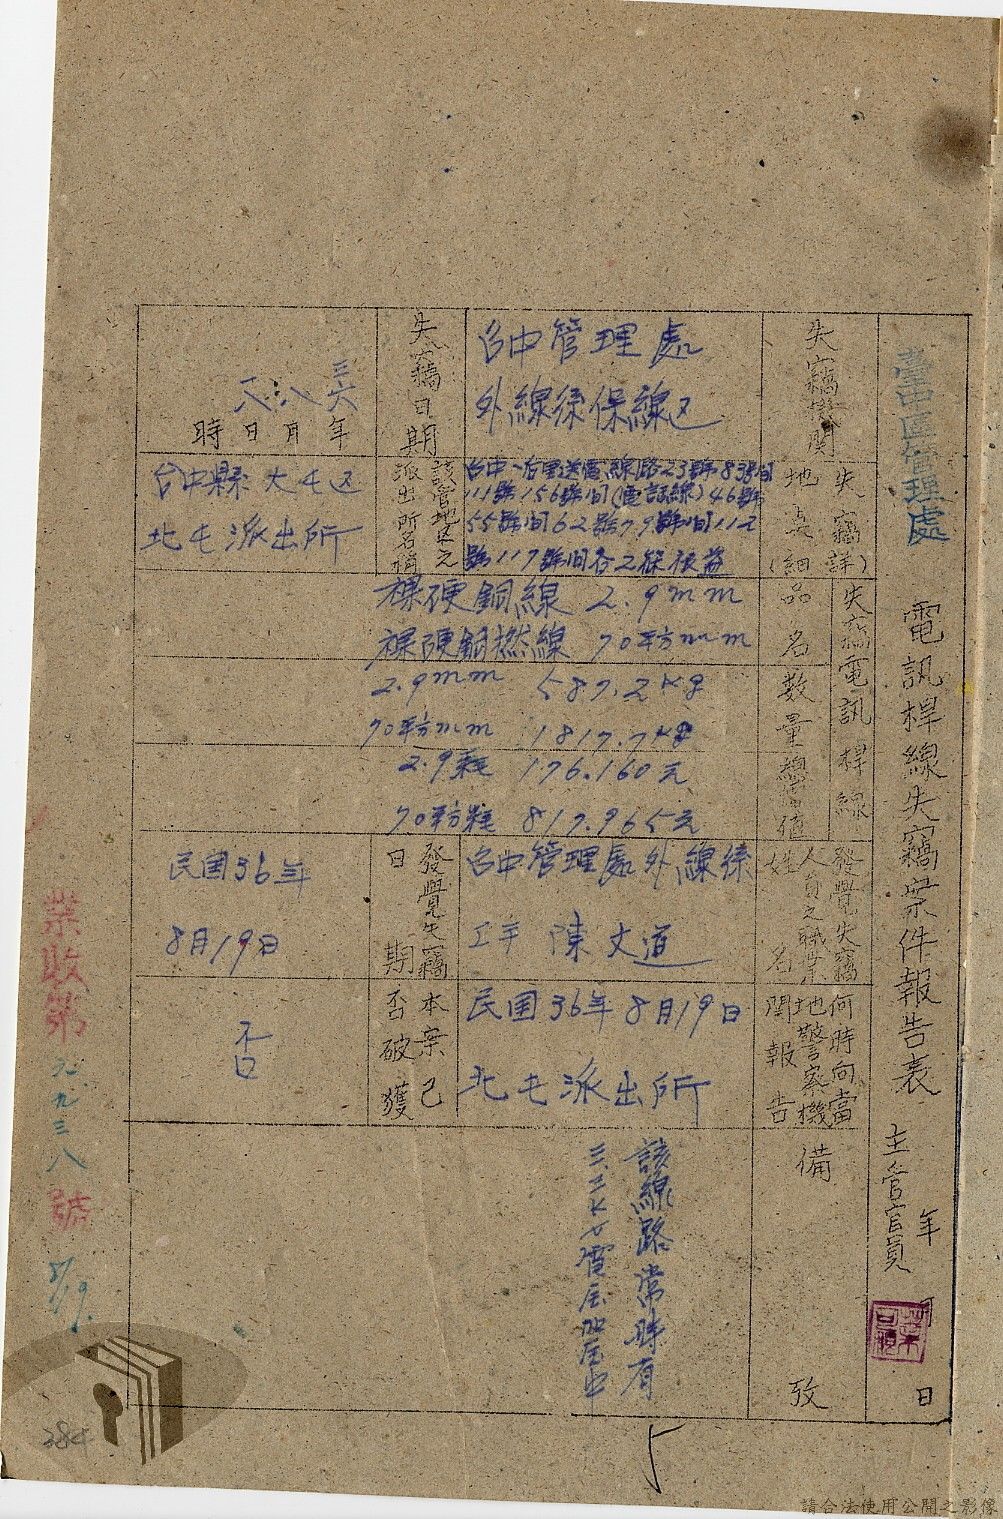 臺中區管理處
電訊桿線失竊案件報告表
主管官員
年 月 日
失竊機関
台中管理處
外線係保線区
失竊日期
三六年八月八日時
失竊詳(細)地点
台中、后里送電線路23號83號間
11號156號間(電話線)46號
55號間62號79號間112
號117號間各2條被盗
該管地区之派出所名稱
台中縣大屯区
北屯派出所
失竊電訊桿線
品名
裸硬銅線 2.9mm
裸硬銅撚線 70平方mm
数量
2.9mm 587.2kg
70平方mm 1817.7kg
總價值
2.9粍 176.160元
70平方粍 817.965元
發覺失竊人員之職業姓名
台中管理處外線係
工手 陳文道
發覺失竊日期
民国36年
8月19日
何時向當地警察機関報告
民国36年8月19日
北屯派出所
本案已否破獲
否
備攷
該線路常時有
電压加压中
業收第
九三八
號
8/19
384
請合法使用公開之影像